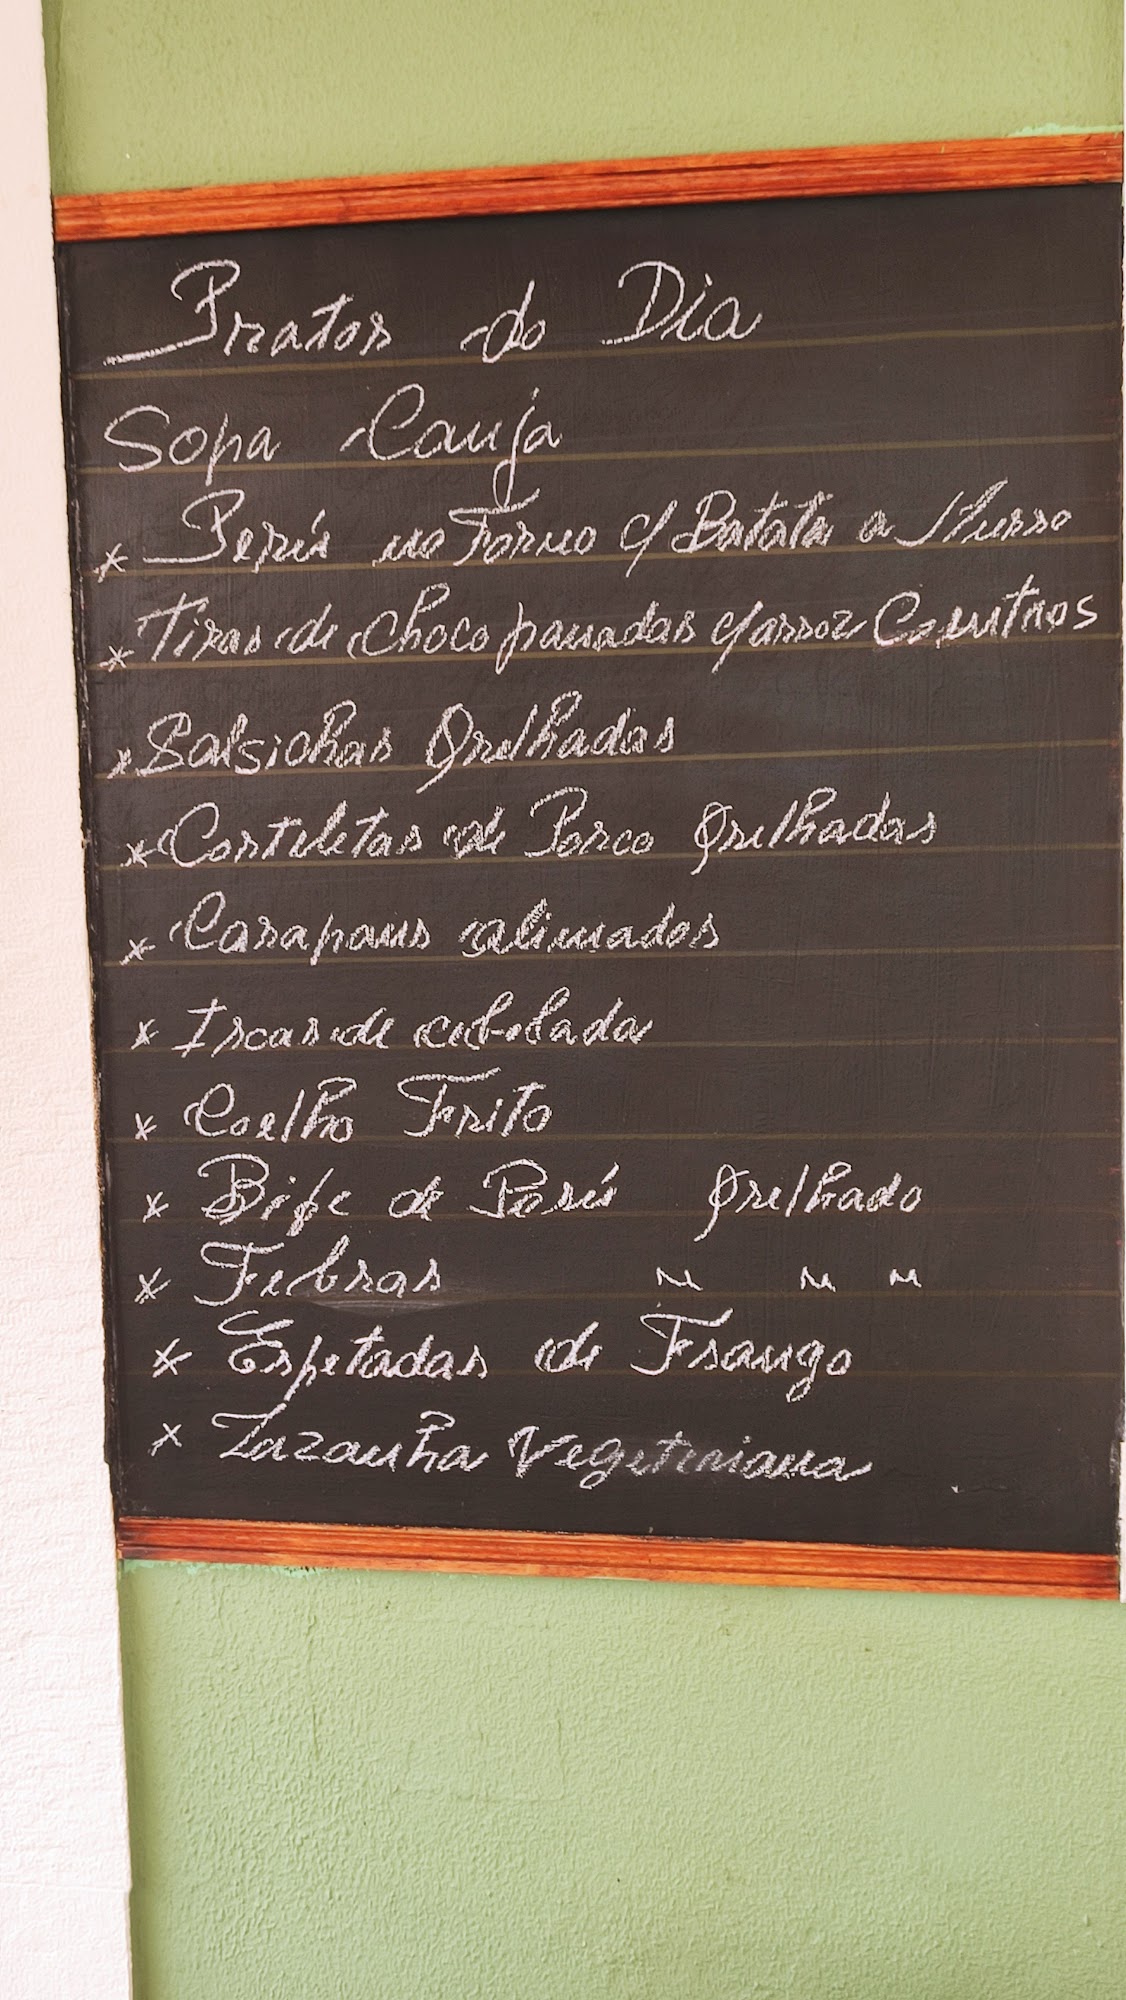 Pratos do Dia
Sopa Canja
* Perú no Forno c/ Batata a Murro
* Tiras de Choco panadas c/ arroz Coentros
* Salsichas Grelhadas
* Costeletas de Porco Grelhadas
* Carapaus alimados
* Iscas de cebolada
* Coelho Frito
* Bife de Perú Grelhado
* Febras " " "
* Espetadas de Frango
* Lazanha Vegeteriana